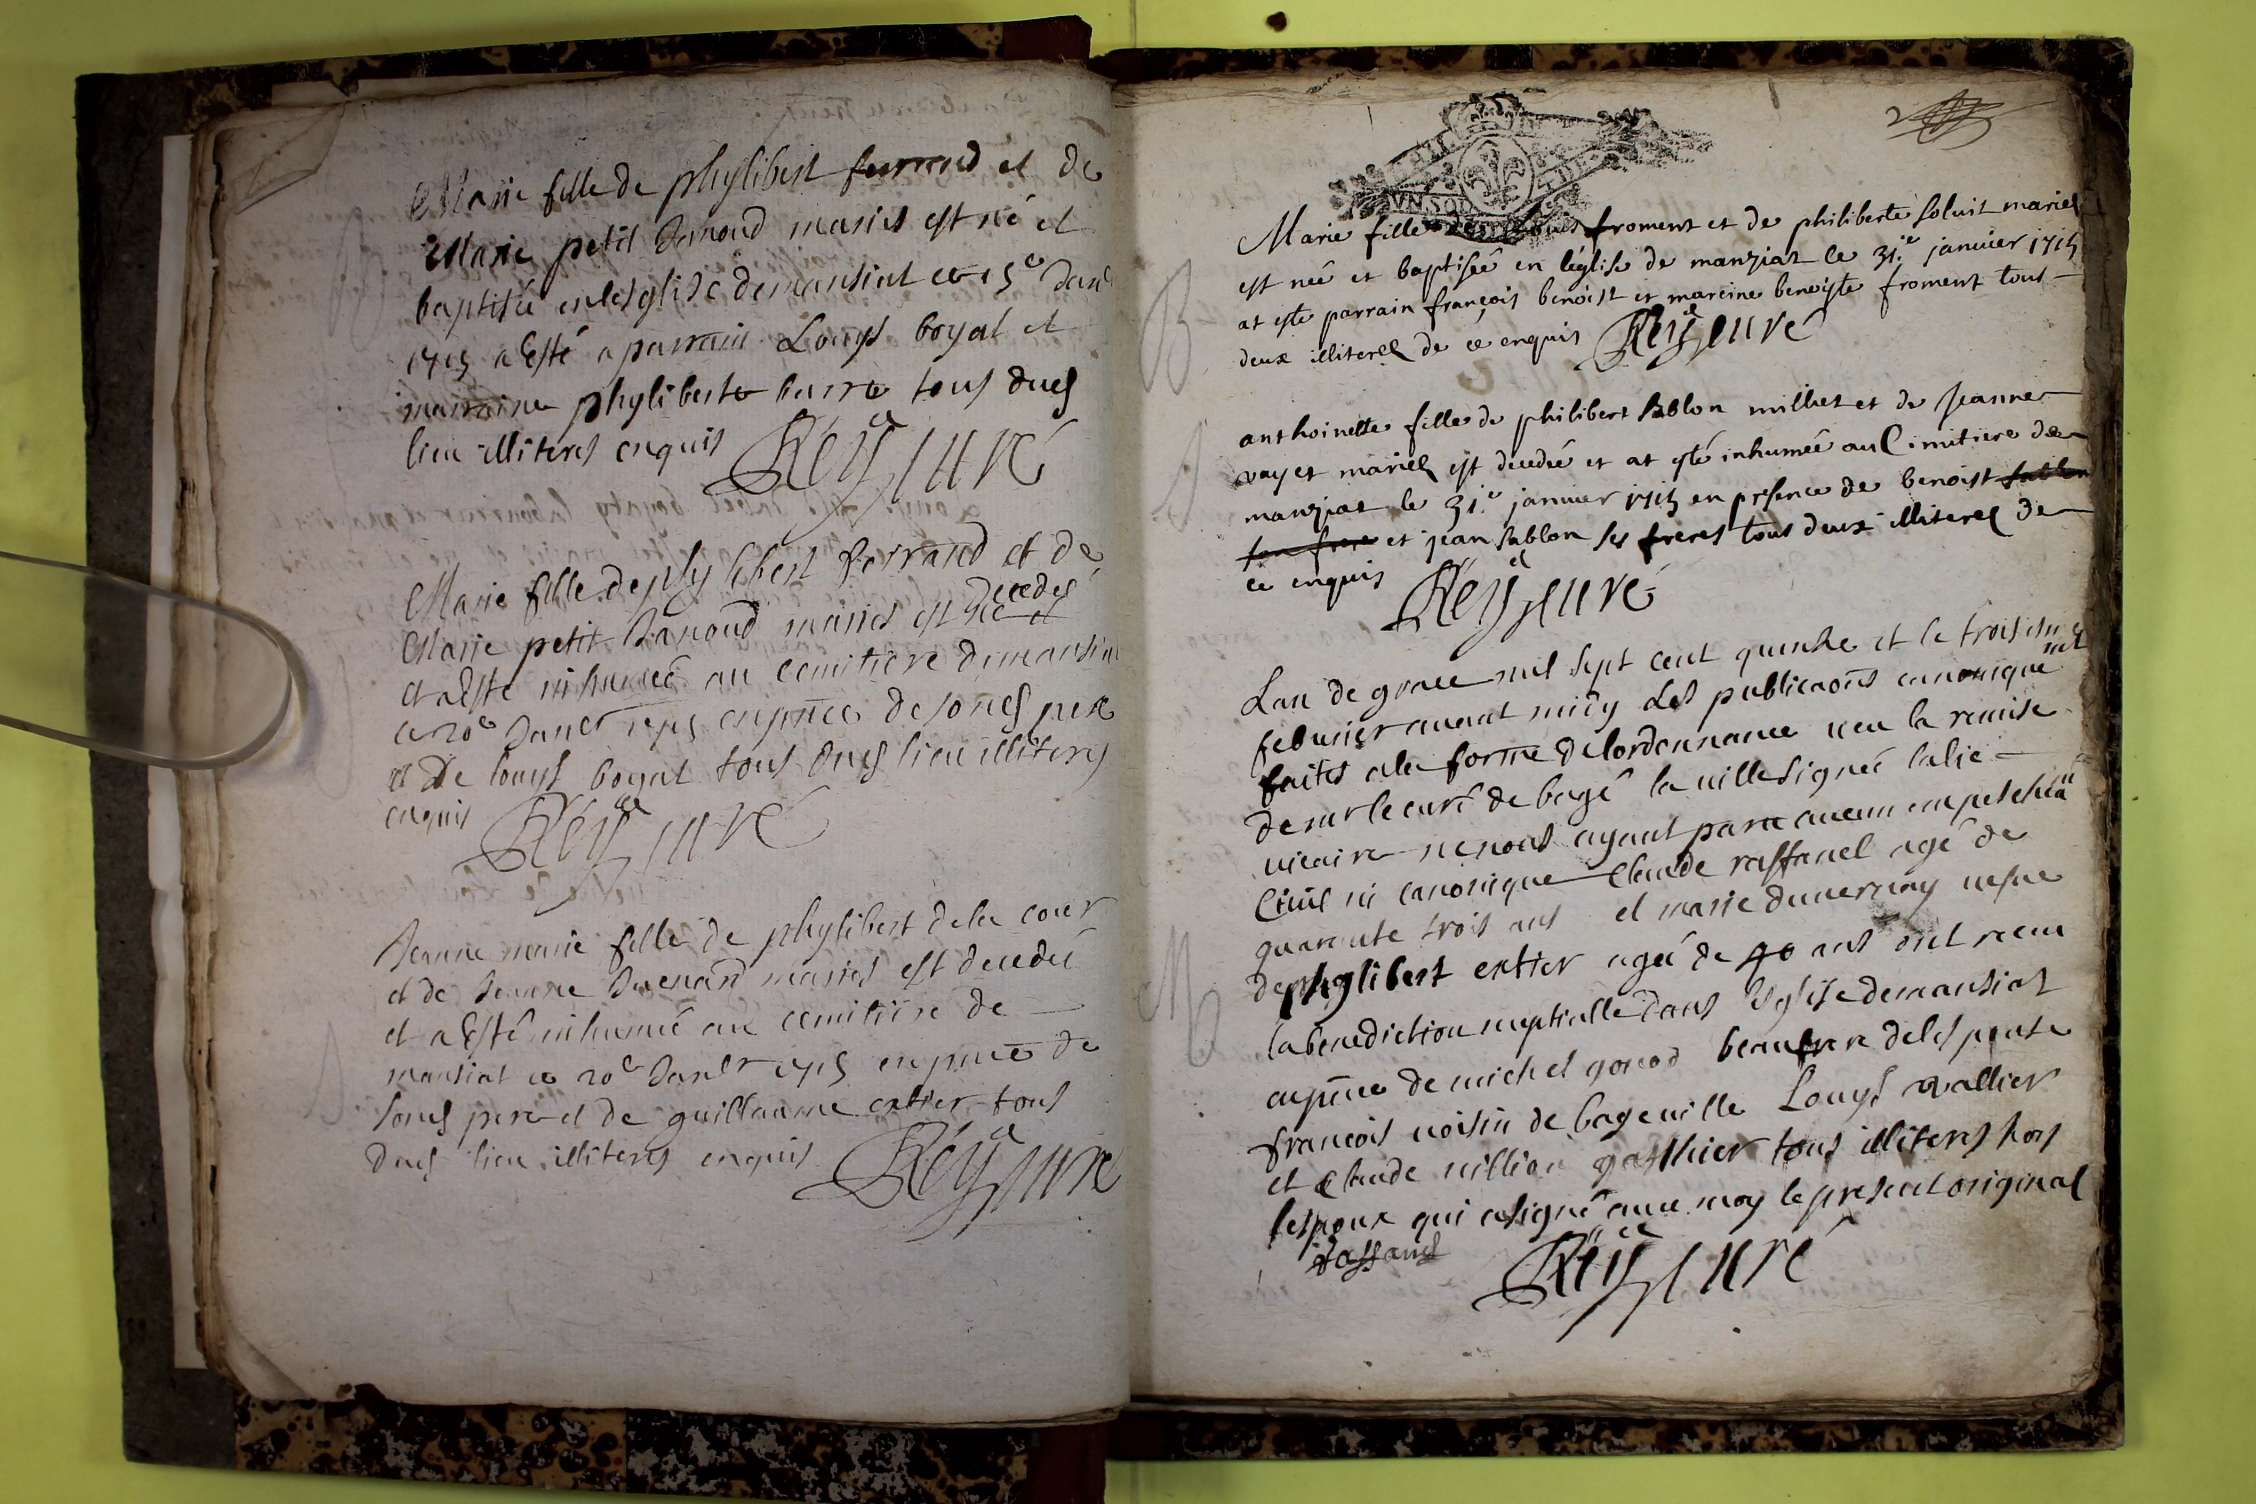 Marie fille de phylibert ferrand et de
Marie petit Janoud mariés est né et
baptisée en lesglise demansiat ce 15e Janr
1715 a Esté a parrain Louys boyat et
marraine phyliberte barre tous dud
lieu illiteres enquis Réy curé
Marie fille dephylibert ferrand et de
Marie petit Janoud mariés est né et decedé
et a Esté inhumeé au cemitiere demansiat
ce 20e Janr 1715 enpnce de soned pere
et De louys boyat tous dud lieu illiteres
enquis Réy curé
Jeanne marie fille de phylibert dela cour
et de Jeanne Duenard mariés est decedeé
et a Esté inhumé au cemitiere de
mansiat ce 20e Janr 1715 enpnce de
soned pere et de guillaume extier tous
dud lieu illiteres enquis Réy curé
2
UN SOL
Marie fille de Louis froment et de philiberte soluit mariés
est neé et baptiseé en léglise de manziat le 31.e janvier 1715
at esté parrain françois benoist et mareine benoiste froment tous
deux illiteres de ce enquis Réy curé
B
anthoinette fille de philibert sablon milliet et de jeanne
vayet mariés est decedeé et at esté inhumeé au Cimitiere de
manziat le 31.e janvier 1715 en presence de benoist sablon
son frere et jean sablon ses freres tous deux illiteres de
ce enquis Réy curé
Lan de grace mil sept cent quinze et le troisiem
feburier avant midy Les publicaons canonique
faites ala forme delordonnance veu la remise
de mr le curé de bagé la ville signeé lalie
vicaire nenous ayant paru aucun empeschem
Civil ni canonique Claude raffanel agé de
quarente trois ans et marie duvernay vefve
de phylibert extier agé de 40 ans ont receu
la benediction nuptialle dans lesglise demansiat
M
enpnce de michel gonod beaufrere delespouse
francois voisin de bageville Louys vallier
et Claude villion gasthier tous illiteres hors
lespoux qui asigné avec moy le present original
Raffanel Réy curé